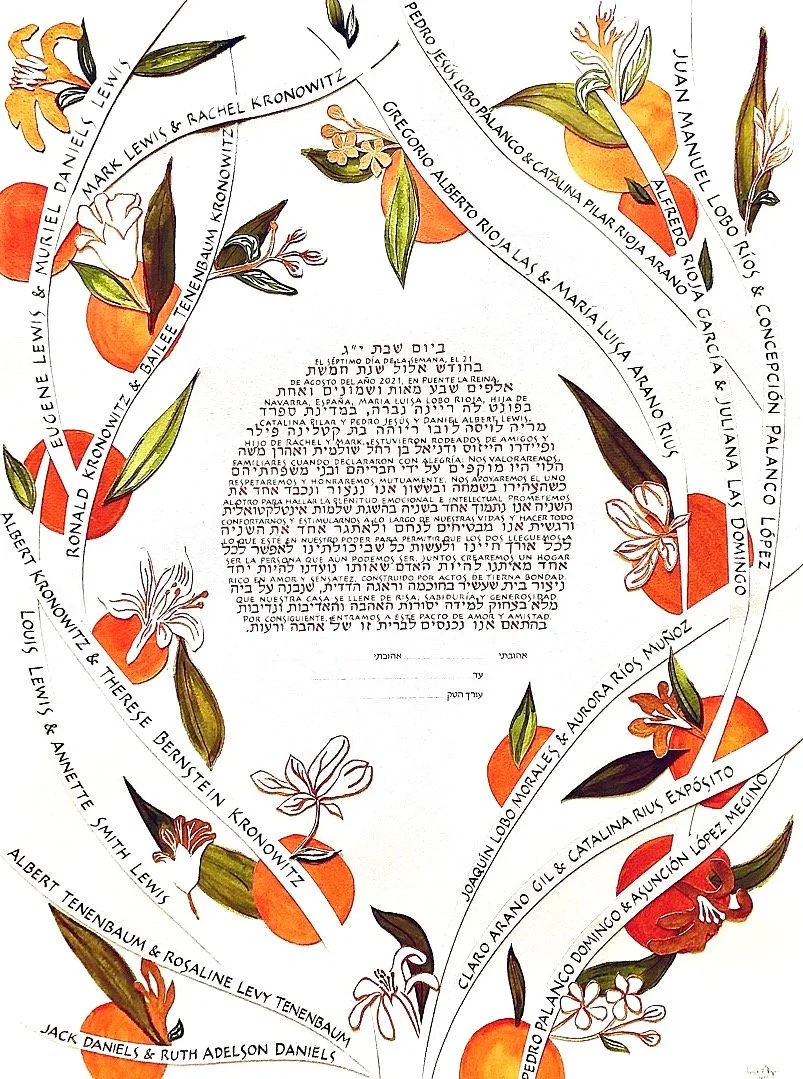 EUGENE LEWIS & MURIEL DANIELS LEWIS
MARK LEWIS & RACHEL KRONOWITZ
RONALD KRONOWITZ & BAILEE TENENBAUM KRONOWITZ
PEDRO JESÚS LOBO PALANCO & CATALINA PILAR RIOJA ARANO
GREGORIO ALBERTO RIOJA LAS & MARÍA LUISA ARANO RIUS
ALFREDO RIOJA GARCÍA & JULIANA LAS DOMINGO
JUAN MANUEL LOBO RÍOS & CONCEPCIÓN PALANCO LÓPEZ
ביום שבת י"ג
EL SÉPTIMO DÍA DE LA SEMANA, EL 21
בחודש אלול שנת חמשת
DE AGOSTO DEL AÑO 2021, EN PUENTE LA REINA,
אלפים שבע מאות ושמונים ואחת
NAVARRA, ESPAÑA, MARIA LUISA LOBO RIOJA, HIJA DE
בפונט לה ריינה נברה, במדינת ספרד
CATALINA PILAR Y PEDRO JESÚS Y DANIEL ALBERT LEWIS,
מריה לויסה לובו ריוחה בת קטלינה פילר
HIJO DE RACHEL Y MARK, ESTUVIERON RODEADOS DE AMIGOS Y
ופיידרו הייזוס ודניאל בן רחל שולמית ואהרן משה
FAMILIARES CUANDO DECLARARON CON ALEGRÍA: NOS VALORAREMOS,
הלוי היו מוקפים על ידי חבריהם ובני משפחתיהם
RESPETAREMOS Y HONRAREMOS MUTUAMENTE. NOS APOYAREMOS EL UNO
כשהצהירו בשמחה ובששון אנו ננצור ונכבד אחד את
AL OTRO PARA HALLAR LA PLENITUD EMOCIONAL E INTELECTUAL. PROMETEMOS
השניה אנו נתמוך אחד בשניה בהשגת שלמות אינטלקטואלית
CONFORTARNOS Y ESTIMULARNOS A LO LARGO DE NUESTRAS VIDAS Y HACER TODO
ורגשית אנו מבטיחים לנחם ולאתגר אחד את השניה
LO QUE ESTÉ EN NUESTRO PODER PARA PERMITIR QUE LOS DOS LLEGUEMOS A
לכל אורך חיינו ולעשות כל שביכולתינו לאפשר לכל
SER LA PERSONA QUE AÚN PODEMOS SER. JUNTOS CREAREMOS UN HOGAR
אחד מאיתנו להיות האדם שאותו נועדנו להיות יחד
RICO EN AMOR Y SENSATEZ, CONSTRUIDO POR ACTOS DE TIERNA BONDAD.
ניצור בית שעשיר בחוכמה וראגה הדדית, שנבנה על ביה
QUE NUESTRA CASA SE LLENE DE RISA, SABIDURÍA Y GENEROSIDAD.
מלא בצחוק למידה יסורות האהבה והאדיבות ונדיבות
POR CONSIGUIENTE, ENTRAMOS A ESTE PACTO DE AMOR Y AMISTAD.
בהתאם אנו נכנסים לברית זו של אהבה ורעות.
אהובתי אהובתי
עד
עורך הטקס
ALBERT KRONOWITZ & THERESE BERNSTEIN KRONOWITZ
LOUIS LEWIS & ANNETTE SMITH LEWIS
ALBERT TENENBAUM & ROSALINE LEVY TENENBAUM
JACK DANIELS & RUTH ADELSON DANIELS
JOAQUÍN LOBO MORALES & AURORA RÍOS MUÑOZ
CLARO ARANO GIL & CATALINA RIUS EXPÓSITO
PEDRO PALANCO DOMINGO & ASUNCIÓN LÓPEZ MEGINO